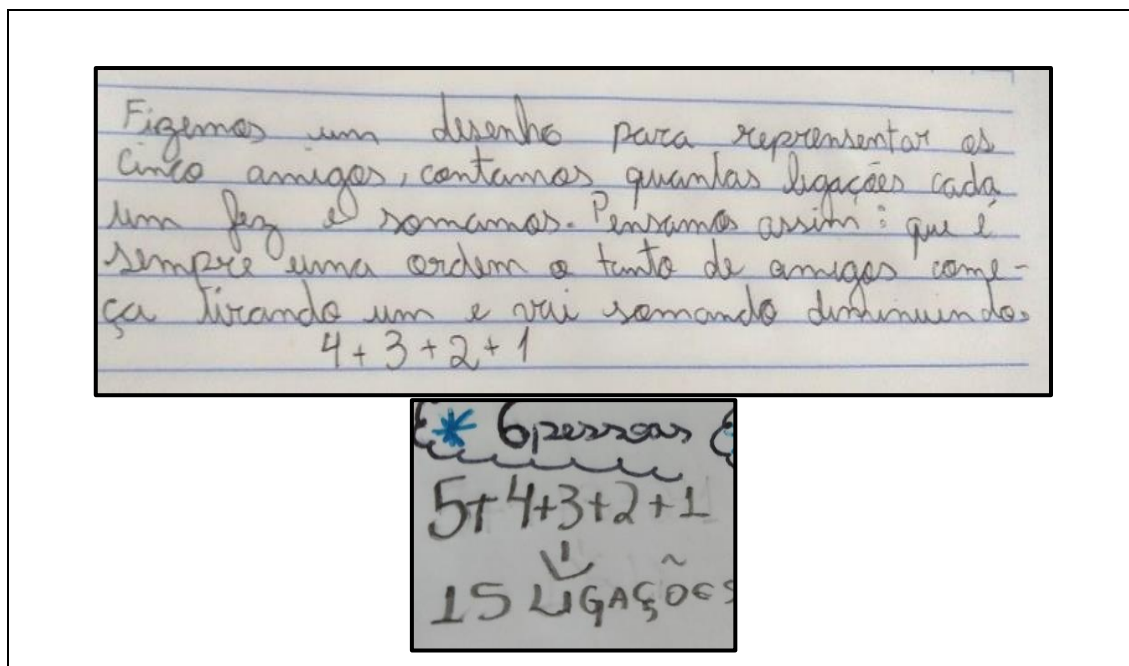 Fizemos um desenho para reprensentar os
cinco amigos, contamos quantas ligações cada
um fez e somamos. Pensamos assim: que é
sempre uma ordem o tanto de amigos come-
ça tirando um e vai somando diminuindo.
4+3+2+1
* 6 pessoas
5+4+3+2+1
15 LIGAÇÕES